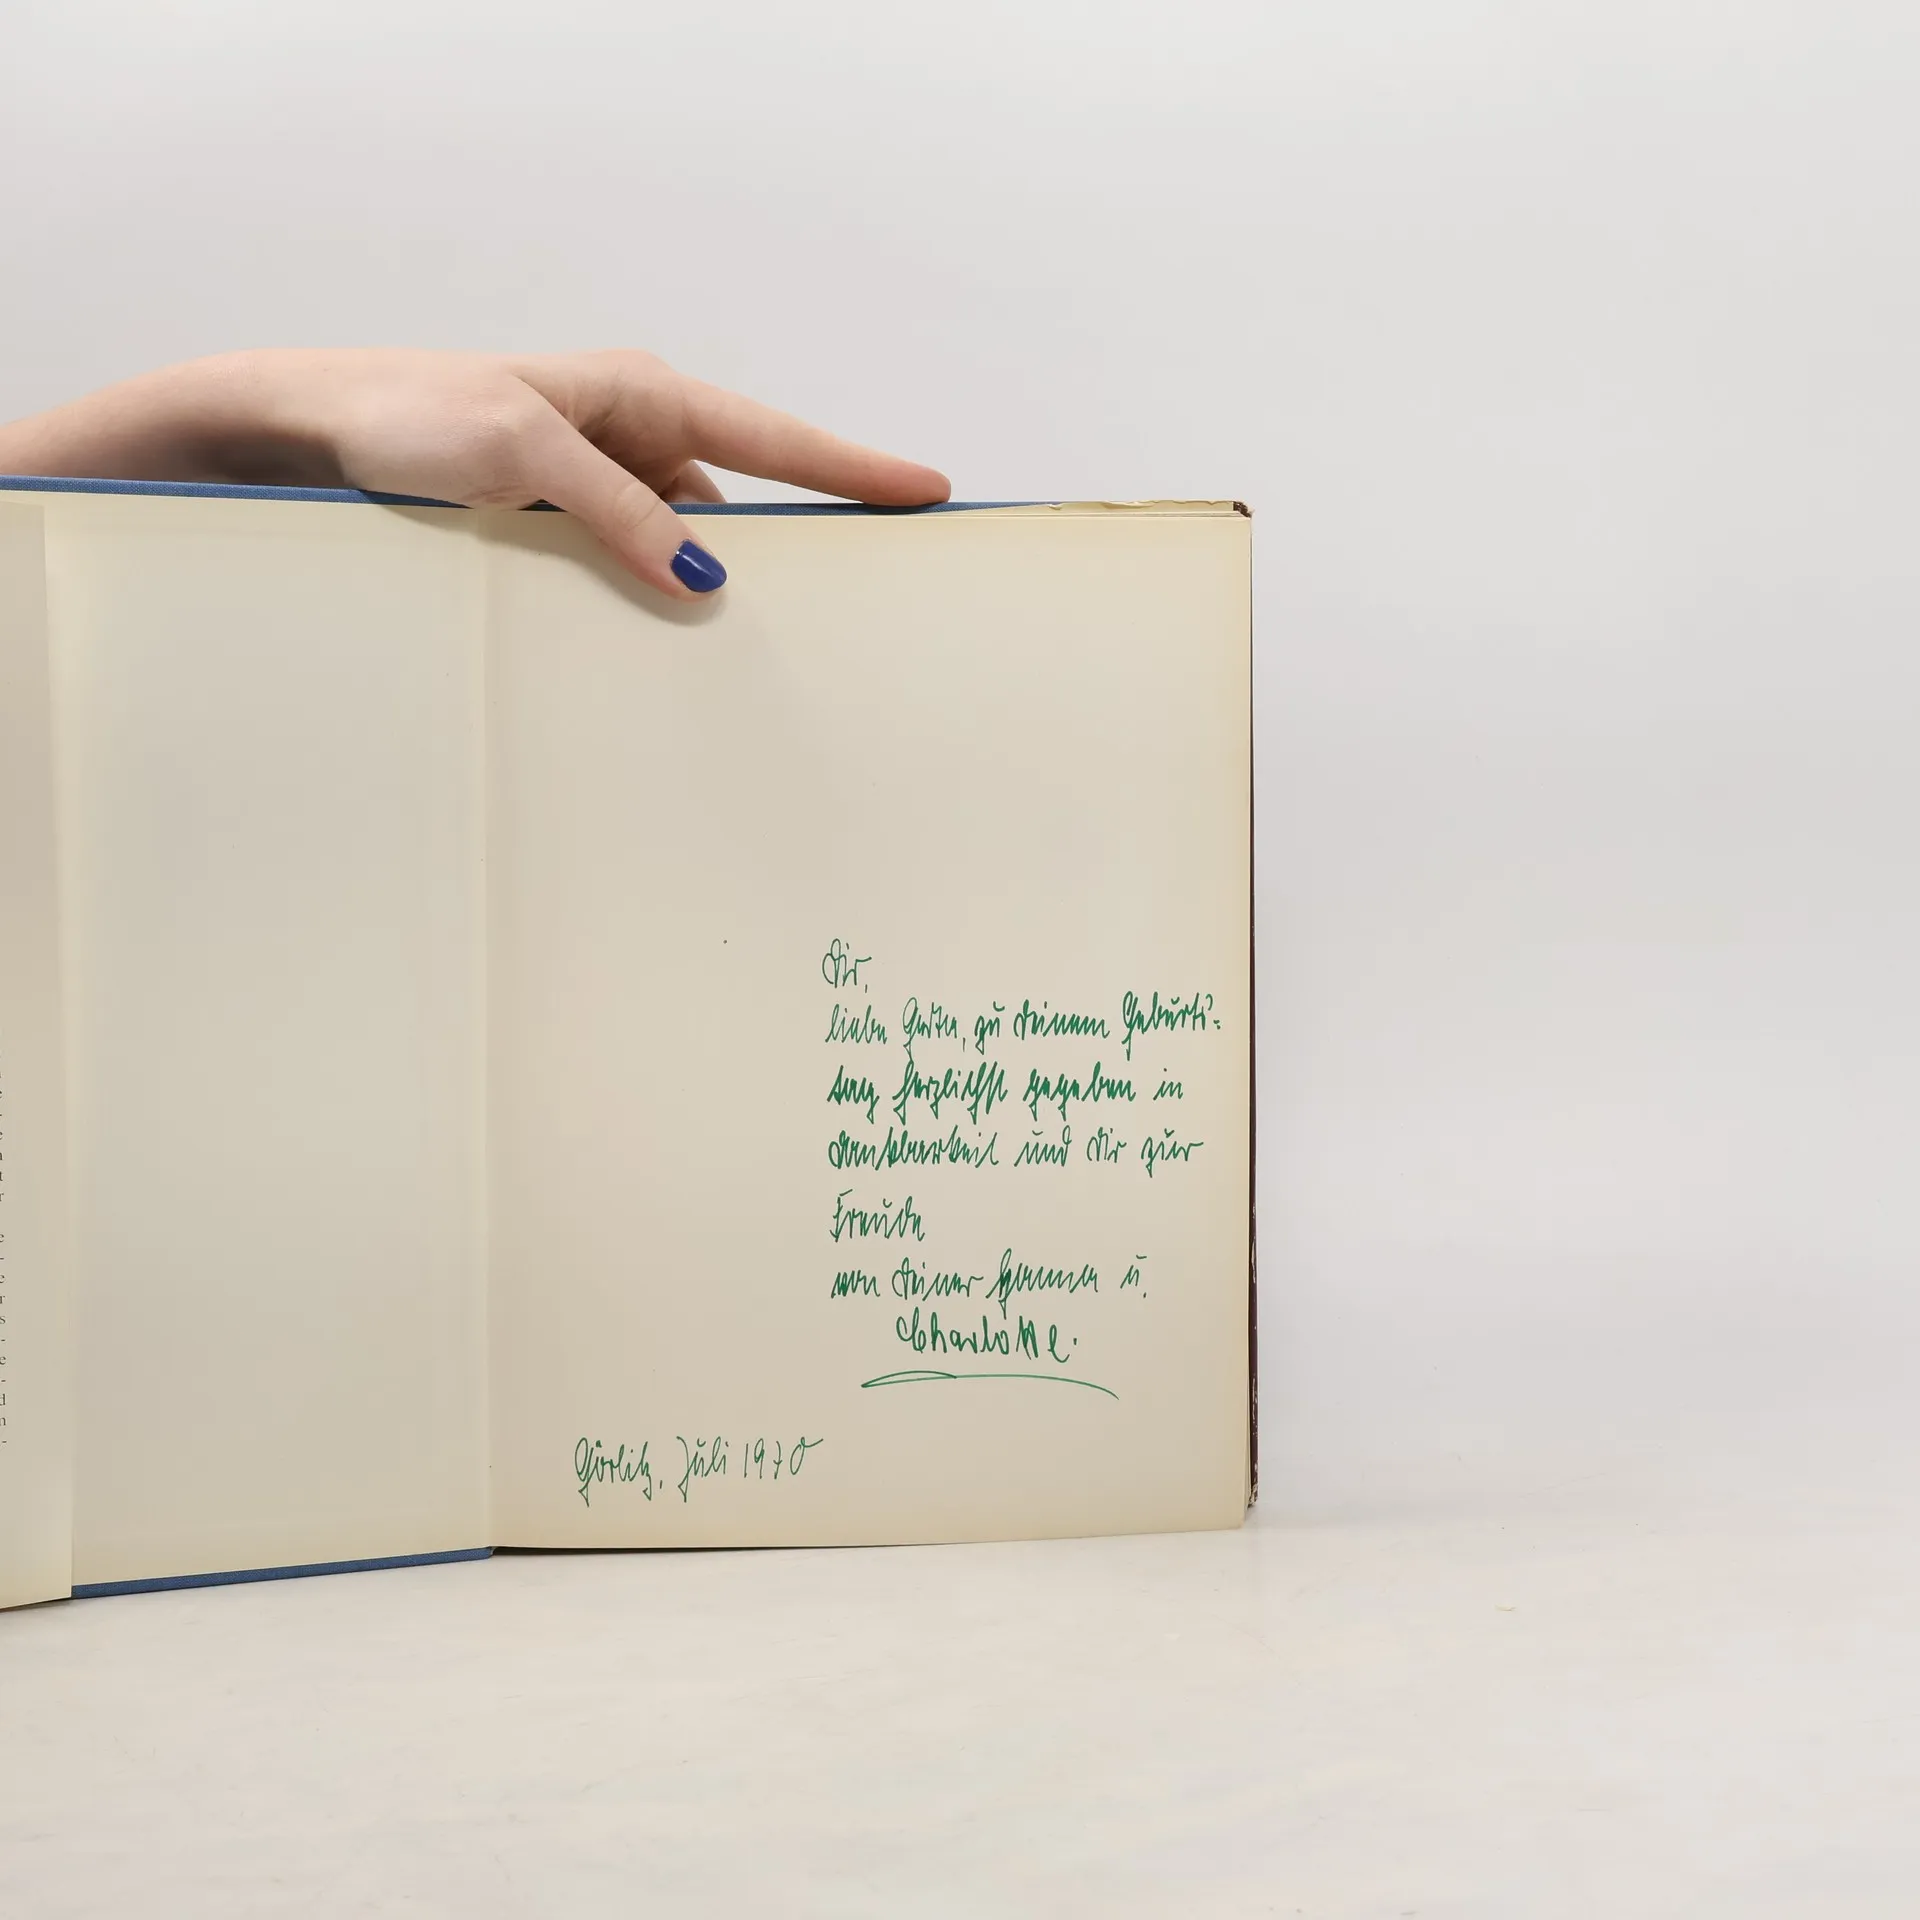 Dir,
liebe Gerta, zu Deinem Geburts=
tag herzlichst gegeben in
Dankbarkeit und Dir zur
Freude
von Deiner Hanna u.
Charlotte.
Görlitz, Juli 1970